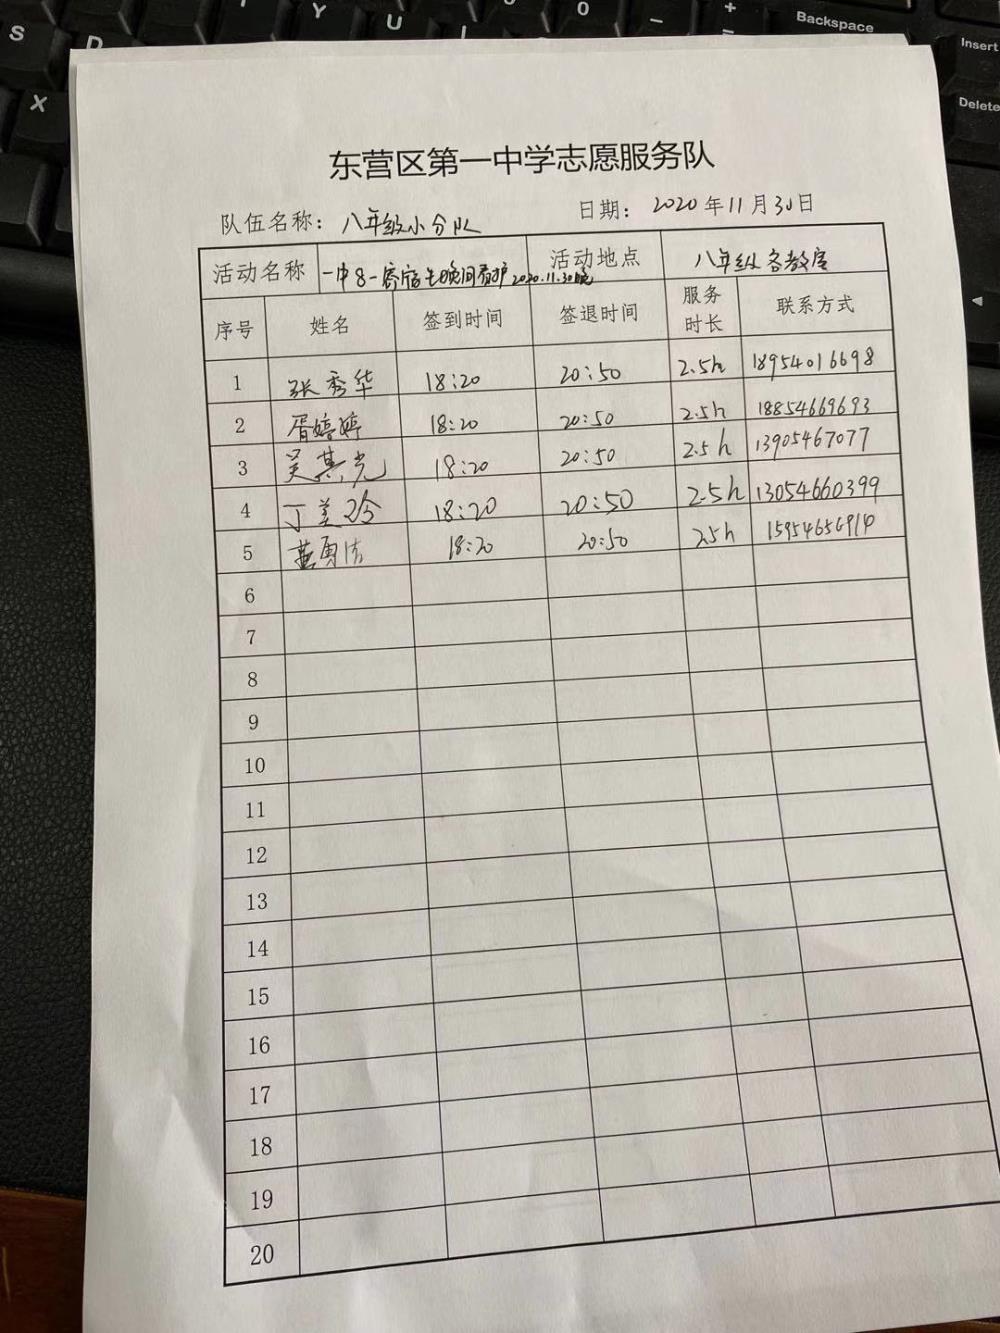 东营区第一中学志愿服务队
队伍名称：八年级小分队 日期：2020年11月30日
活动名称 一中8一寄宿生晚间看护2020.11.30晚 活动地点 八年级各教室
序号 姓名 签到时间 签退时间 服务时长 联系方式
1 张秀华 18:20 20:50 2.5h 18954016698
2 胥婷婷 18:20 20:50 2.5h 18854669693
3 吴其光 18:20 20:50 2.5h 13905467077
4 丁美玲 18:20 20:50 2.5h 13054660399
5 18:20 20:50 2.5h
6
7
8
9
10
11
12
13
14
15
16
17
18
19
20
S
D
X
T
Y
U
I
0
Backspace
Insert
Delete